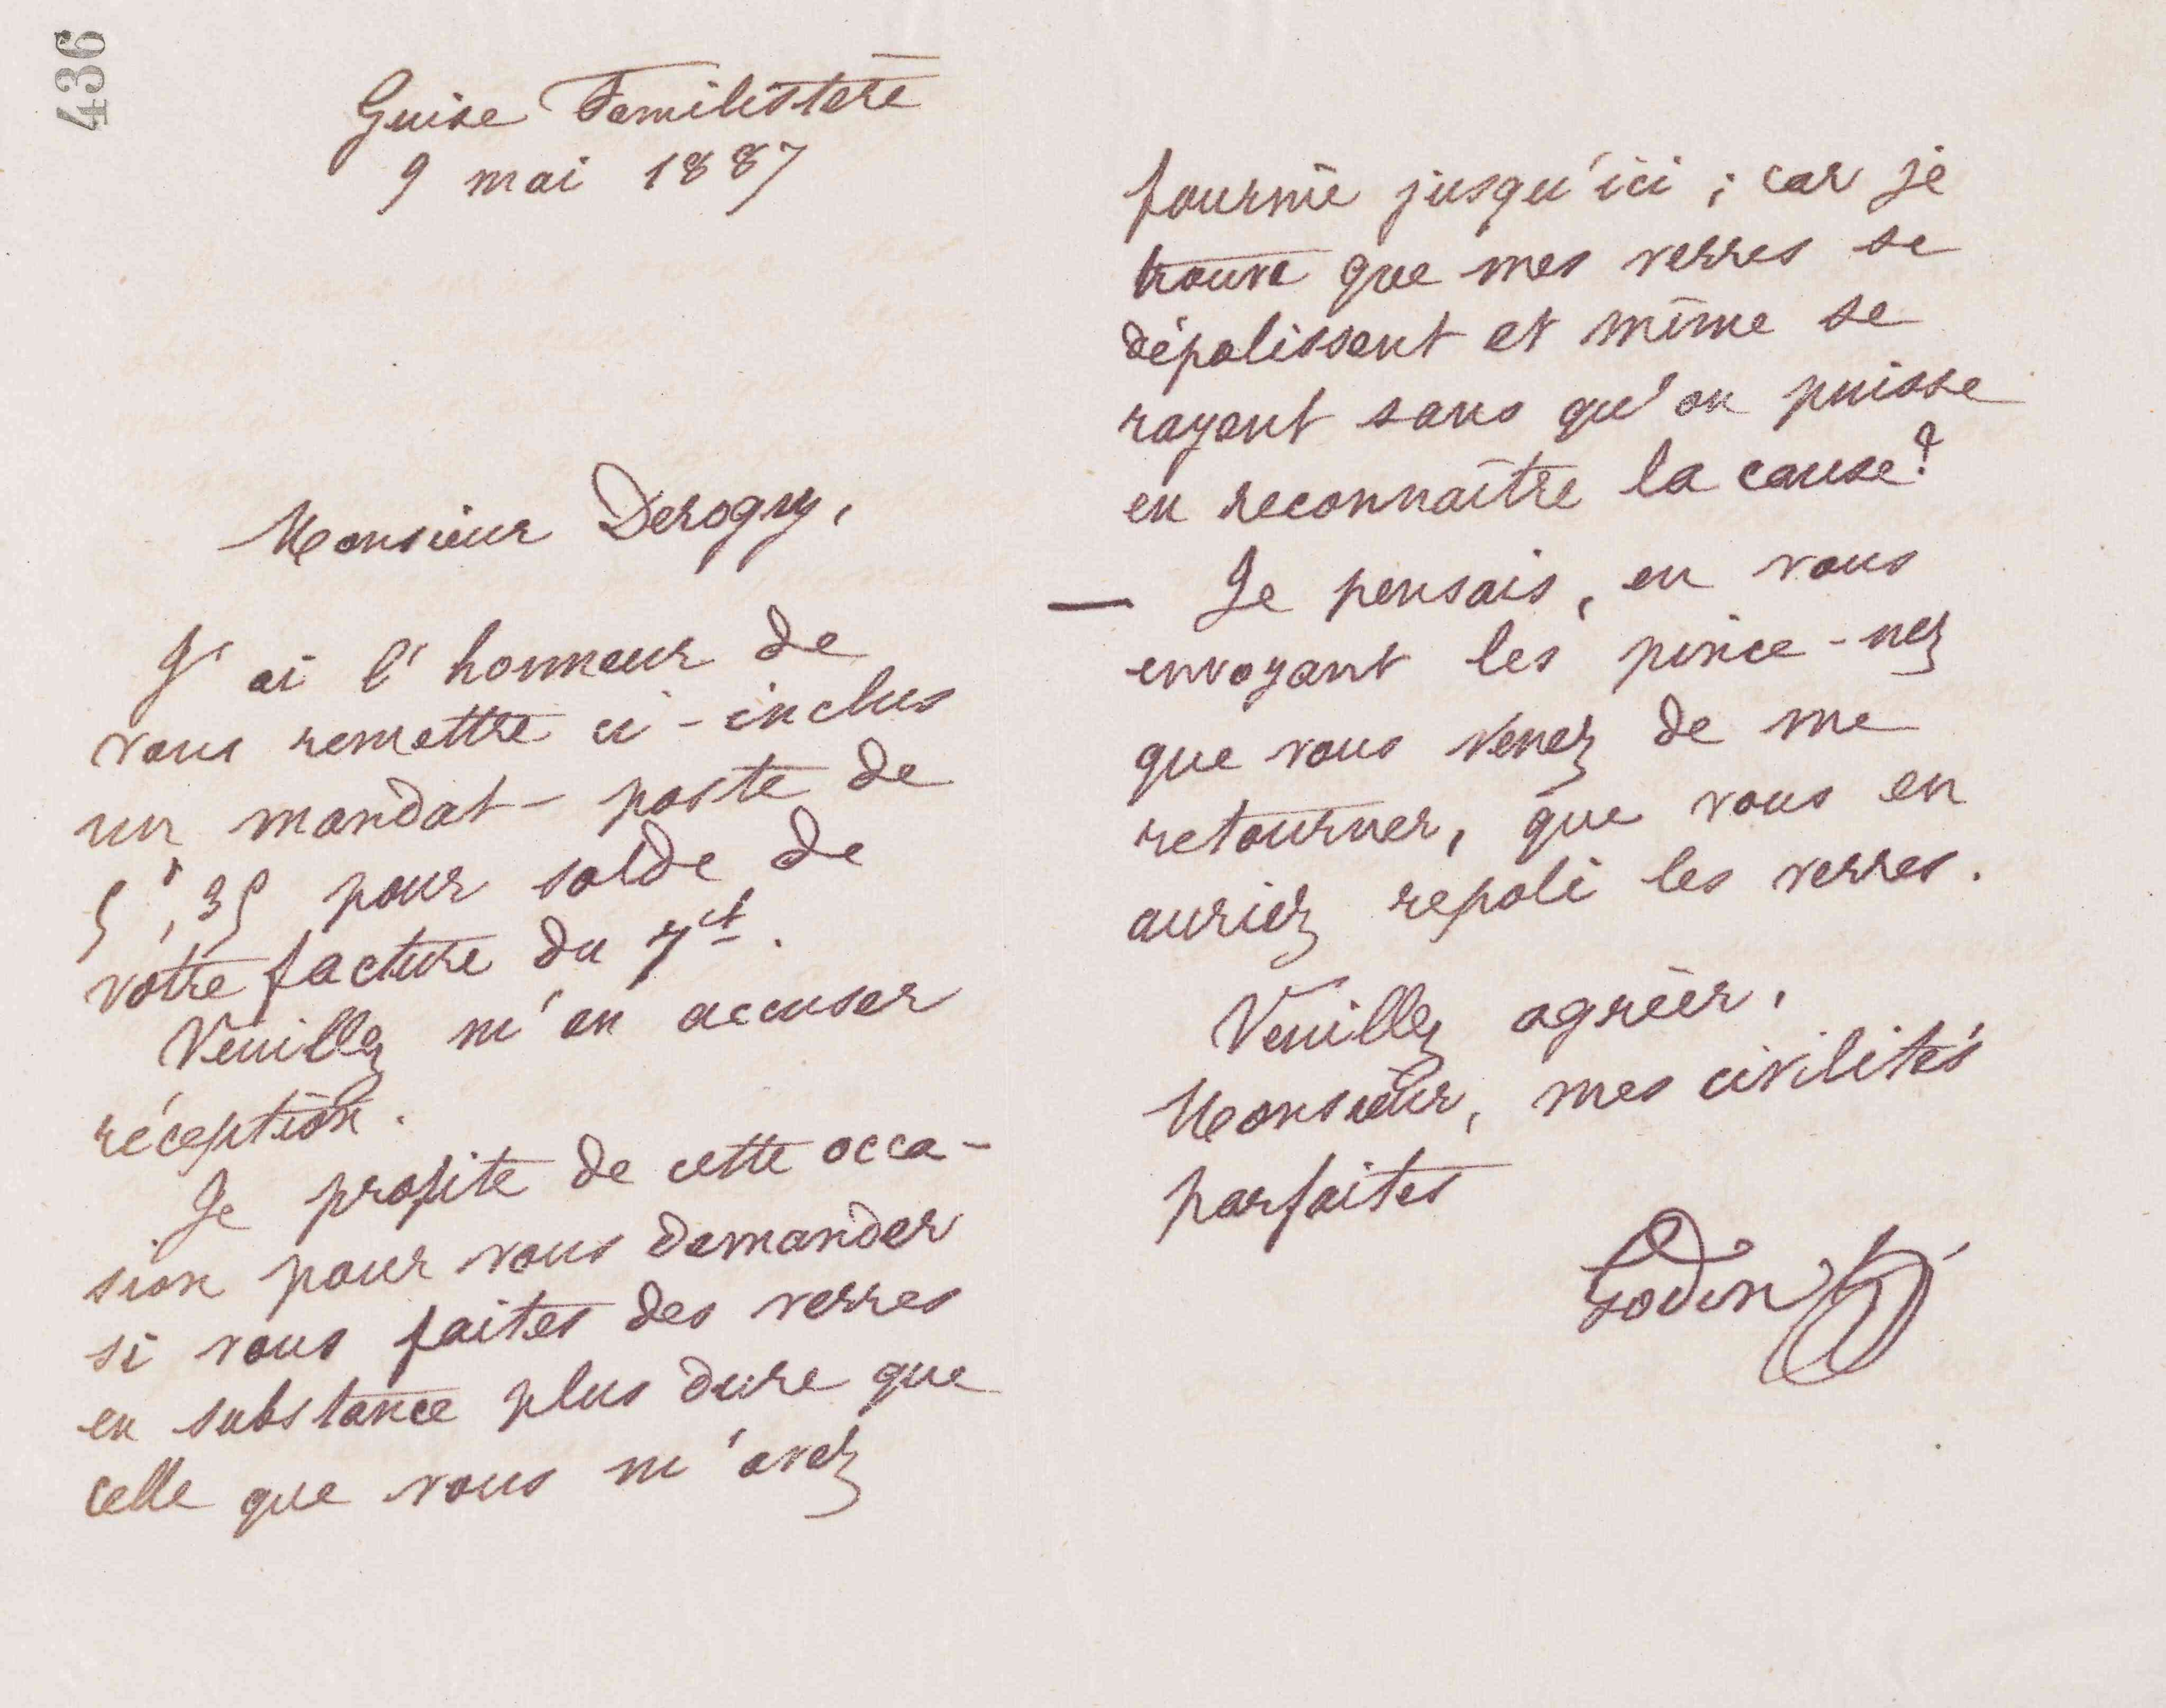 436
Guise Familistère
9 mai 1887
Monsieur Derogy,
J'ai l'honneur de
vous remettre ci-inclus
un mandat-poste de
5f,35 pour solde de
votre facture du 7ct.
Veuillez m'en accuser
réception.
Je profite de cette occa-
sion pour vous demander
si vous faites des verres
en substance plus dure que
celle que vous m'avez
fournie jusqu'ici ; car je
trouve que mes verres se
dépolissent et même se
rayent sans qu'on puisse
en reconnaître la cause?
— Je pensais, en vous
envoyant les pince-nez
que vous venez de me
retourner, que vous en
auriez repoli les verres.
Veuillez agréer,
Monsieur, mes civilités
parfaites
Godin